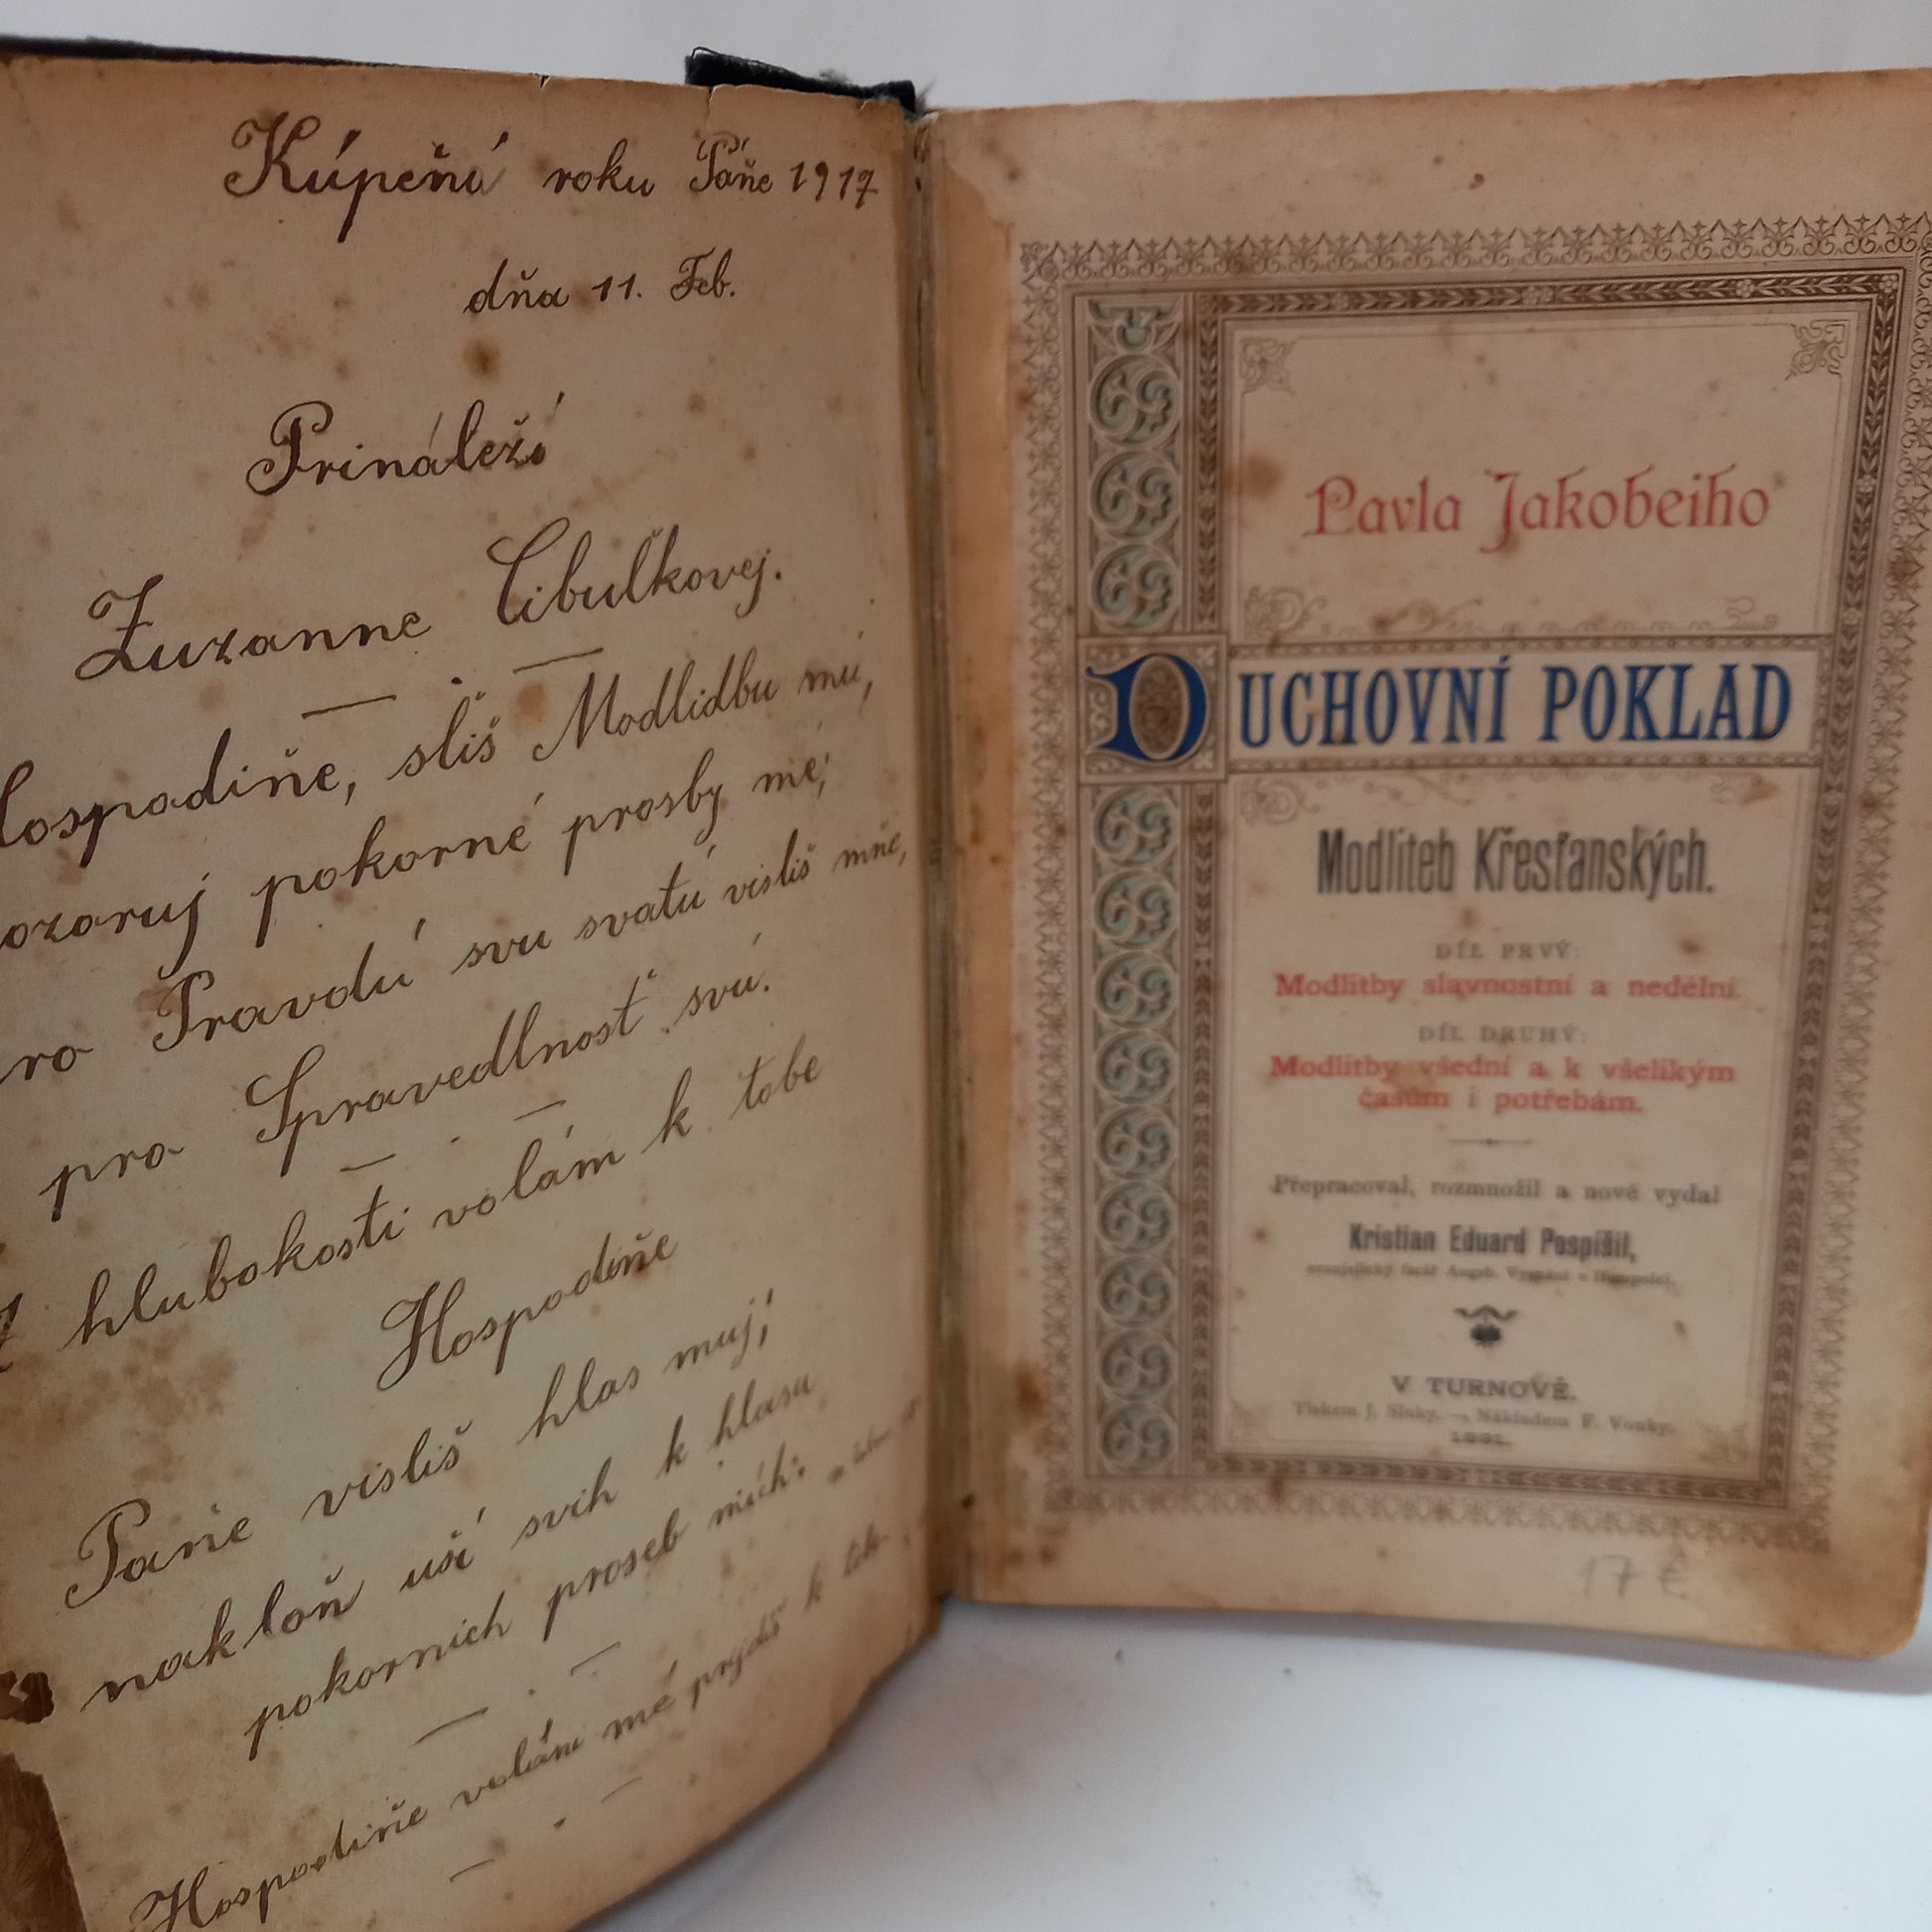 Kúpeňí roku Páňe 1917
dňa 11. Feb.
Prináleží
Zuzanne Cibuľkovej.
Hospodiňe, sliš Modlidbu mú,
pozoruj pokorné prosby mé;
pro Pravdú svu svatú visliš mňe,
pro Spravedlnosť svú.
Z hlubokosti volám k tobe
Hospodiňe
Pane visliš hlas muj;
nakloň uší svih k hlasu
pokornich proseb mích.
Hospodiňe volám mé prijdiž k
Pavla Jakobeiho
DUCHOVNÍ POKLAD
Modliteb Křesťanských.
DÍL PRVÝ:
Modlitby slavnostní a nedělní.
DÍL DRUHÝ:
Modlitby všední a k všelikým
časům i potřebám.
Přepracoval, rozmnožil a nově vydal
Kristian Eduard Pospíšil,
evanjelický farář Augsb. Vyznání v Humpolci.
V TURNOVĚ.
Tiskem J. Sluky. — Nákladem F. Vonky.
1891.
17 €